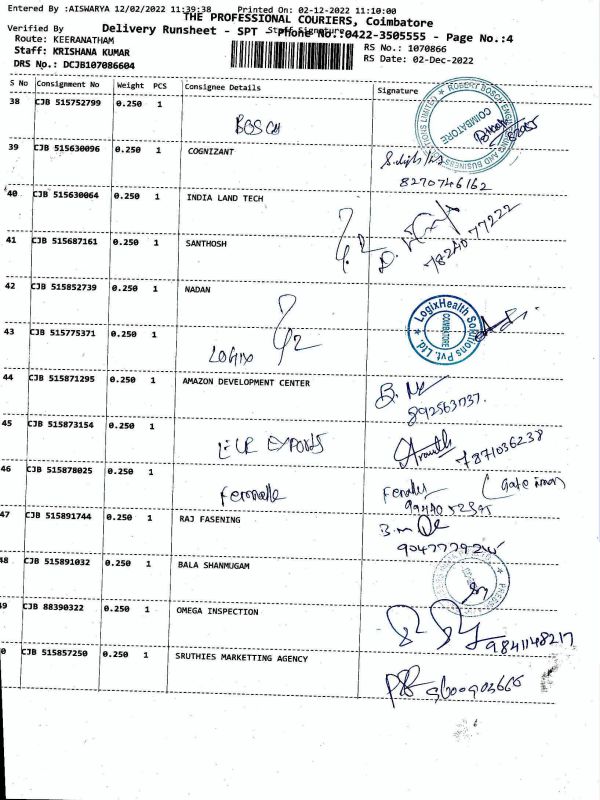 Entered By :AISWARYA 12/02/2022 11:39:38 Printed On: 02-12-2022 11:10:00
THE PROFESSIONAL COURIERS, Coimbatore
Verified By Delivery Runsheet - SPT - Phone No.:0422-3505555 - Page No.:4
Staff Signature
Route: KEERANATHAM
RS No.: 1070866
Staff: KRISHANA KUMAR
RS Date: 02-Dec-2022
DRS No.: DCJB107086604
S No Consignment No Weight PCS Consignee Details Signature
38 CJB 515752799 0.250 1 BOSCH
39 CJB 515630096 0.250 1 COGNIZANT
8270746162
40 CJB 515630064 0.250 1 INDIA LAND TECH
41 CJB 515687161 0.250 1 SANTHOSH
7824077222
42 CJB 515852739 0.250 1 NADAN
LogixHealth Solutions Pvt. Ltd. COIMBATORE
43 CJB 515775371 0.250 1 LOGIX
44 CJB 515871295 0.250 1 AMAZON DEVELOPMENT CENTER
892563737.
45 CJB 515873154 0.250 1 EXPORTS
7871036238
46 CJB 515878025 0.250 1
47 CJB 515891744 0.250 1 RAJ FASENING
48 CJB 515891032 0.250 1 BALA SHANMUGAM
49 CJB 88390322 0.250 1 OMEGA INSPECTION
9841148217
0 CJB 515857250 0.250 1 SRUTHIES MARKETTING AGENCY
9600903666